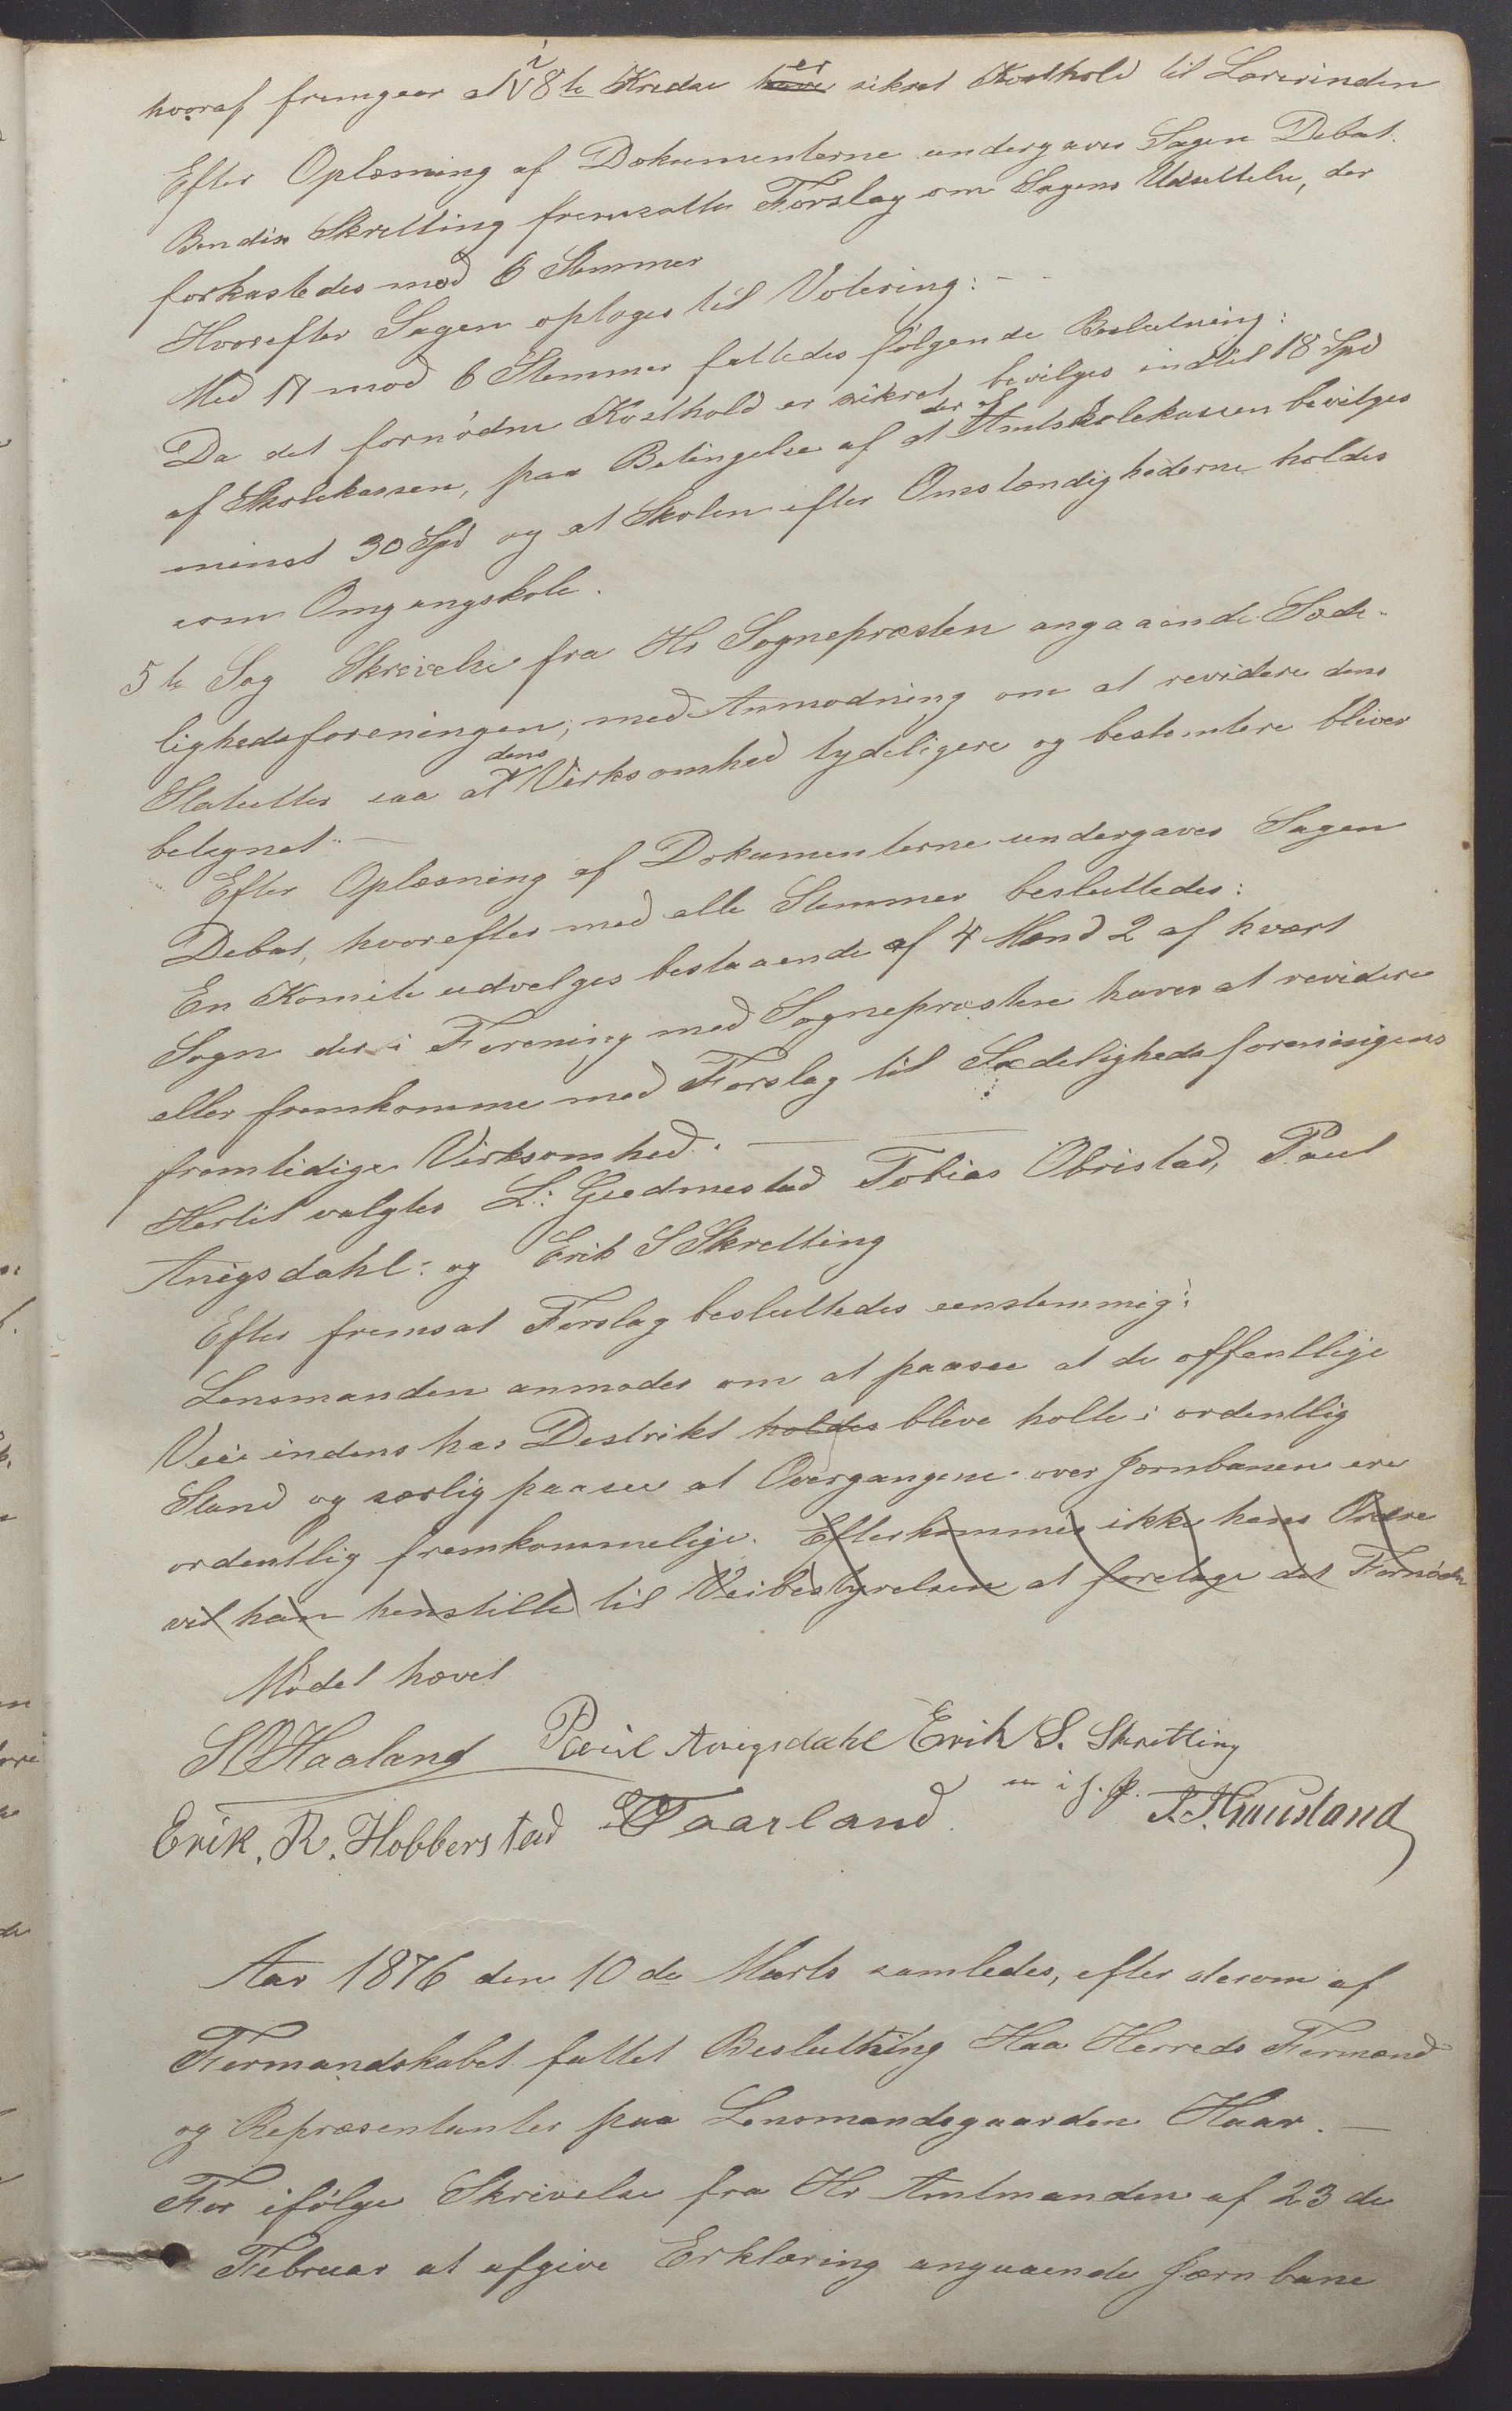 hvoraf fremgaar at i 8te Kredse er sikret Kosthold til Lærerinden
Efter Oplæsning af Dokumenterne undergaves Sagen Debat.
Bendix Skretting fremsatte Forslag om Sagens Udsettelse, der
forkastedes mod 6 Stemmer
Hvorefter Sagen optoges til Votering: –
Med 17 mod 6 Stemmer fattedes følgende Beslutning:
Da det fornødne Kosthold er sikret, bevilges indtil 18 Spd
af Skolekassen, paa Betingelse af at der af Amtskolekassen bevilges
minst 30 Spd og at Skolen efter Omstændighederne holdes
som Omgangskole.
5te Sag Skrivelse fra Hr Sognepræsten angaaende Sæde-
lighedsforeningen, med Anmodning om at revidere dens
Statutter saa at dens Virksomhed tydeligere og bestemtere bliver
betegnet. –
Efter Oplæsning af Dokumenterne undergaves Sagen
Debat, hvorefter med alle Stemmer besluttedes:
En Komite udvelges bestaaende af 4 Mend 2 af hvert
Sogn der i Forening med Sognepræsten haver at revidere
eller fremkomme med Forslag til Sædelighedsforeningens
fremtidige Virksomhed. —
Hertil valgtes L: Gudmestad Tobias Obristad, Paul
Anigsdahl: og Erik S Skretting
Efter fremsat Forslag besluttedes eenstemmig:
Lensmanden anmodes om at paasee at de offentlige
Veie indens has Destrikt holdes blive holte i ordentlig
Stand og særlig paasee at Overgangene over Jernbanen ere
ordentlig fremkommelige. Efterkommes ikke hans Ordre
vil han henstille til Veibestyrelsen at foretage det Fornødne
Mødet hævet
Haaland Paul Anigsdahl Erik S. Skretting
m i f. P.
Erik. R. Hobberstad Taarland.
Aar 1876 den 10de Marts samledes, efter derom af
Formandskabet fattet Beslutning Haa Herreds Formænd
og Repræsentanter paa Lensmandsgaarden Haar. –
For ifølge Skrivelse fra Hr Amtmanden af 23de
Februar at afgive Erklæring angaaende Jærnbane